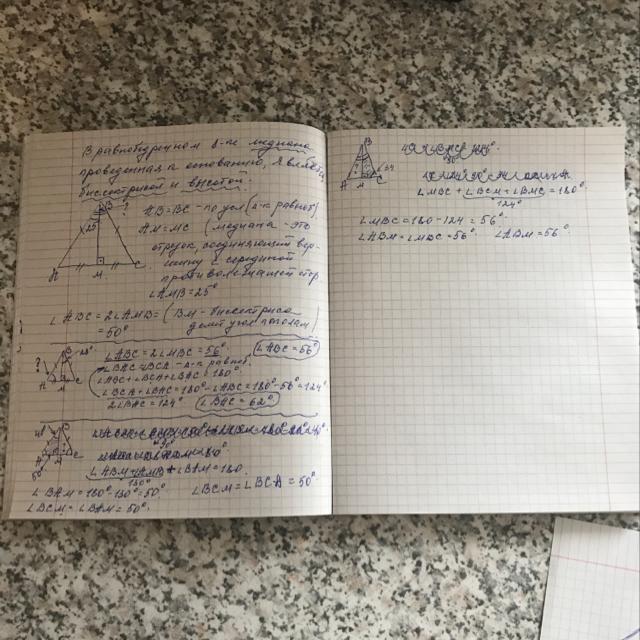 В равнобедренном Δ-ке медиана
проведенная к основанию, является
биссектрисой и высотой.
AB=BC - по усл (Δ-к равноб)
AM=MC (медиана - это
отрезок соединяющий вер-
шину с серединой
противолежащей стор
∠AMB=25°
∠ABC=2∠AMB= (BM - биссектриса
=50° делит угол пополам)
∠ABC=2∠MBC=56° ∠ABC=56°
∠BAC=∠BCA - Δ-к равноб.
∠ABC+∠BCA+∠BAC=180°
∠BCA+∠BAC=180°-∠ABC=180°-56°=124°
2∠BAC=124° ∠BAC=62°
∠ABM+∠AMB+∠BAM=180
130°
∠BAM=180°-130°=50° ∠BCM=∠BCA=50°
∠BCM=∠BAM=50°.
∠MBC+∠BCM+∠BMC=180°
124°
∠MBC=180-124=56°
∠ABM=∠MBC=56° ∠ABM=56°